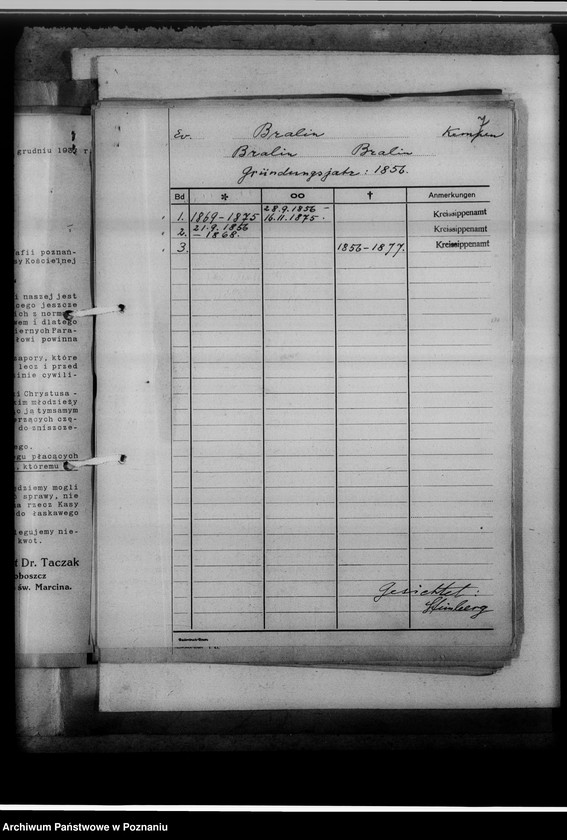 grudniu 193
Ev. Bralin Kempen
Bralin Bralin
Gründungsjahr: 1856.
Bd * ∞ † Anmerkungen
1. 1869-1875 28.9.1856 - 16.11.1875. Kreissippenamt
2. 21.9.1856 - 1868. Kreissippenamt
3. 1856-1877. Kreissippenamt
afii poznań-
sy Kościelnej
i naszej jest
cego jeszcze
ich z norm
wem i dlatego
iernych Para-
łowi powinna
sapory, które
lecz i przed
inie cywili-
i Chrystusa -
kim młodzieży
c ją tymsamym
erzących czę-
do zniszcze-
ego.
gu płacących
, któremu
dziemy mogli
sprawy, nie
na rzecz Kasy
do łaskawego
legujemy nie-
kwot.
t Dr. Taczak
oboszcz
św. Marcina.
Gesichtet:
Archiwum Państwowe w Poznaniu